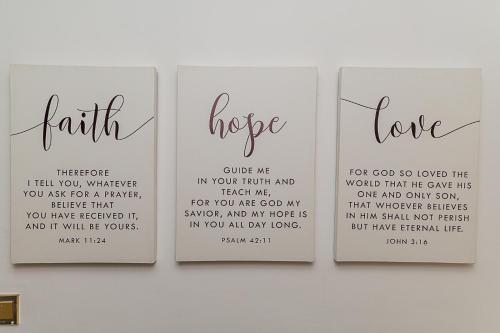 faith
THEREFORE
I TELL YOU, WHATEVER
YOU ASK FOR A PRAYER,
BELIEVE THAT
YOU HAVE RECEIVED IT,
AND IT WILL BE YOURS.
MARK 11:24
hope
GUIDE ME
IN YOUR TRUTH AND
TEACH ME,
FOR YOU ARE GOD MY
SAVIOR, AND MY HOPE IS
IN YOU ALL DAY LONG.
PSALM 42:11
love
FOR GOD SO LOVED THE
WORLD THAT HE GAVE HIS
ONE AND ONLY SON,
THAT WHOEVER BELIEVES
IN HIM SHALL NOT PERISH
BUT HAVE ETERNAL LIFE.
JOHN 3:16